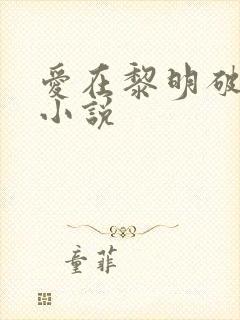 愛在黎明破
小說
童菲